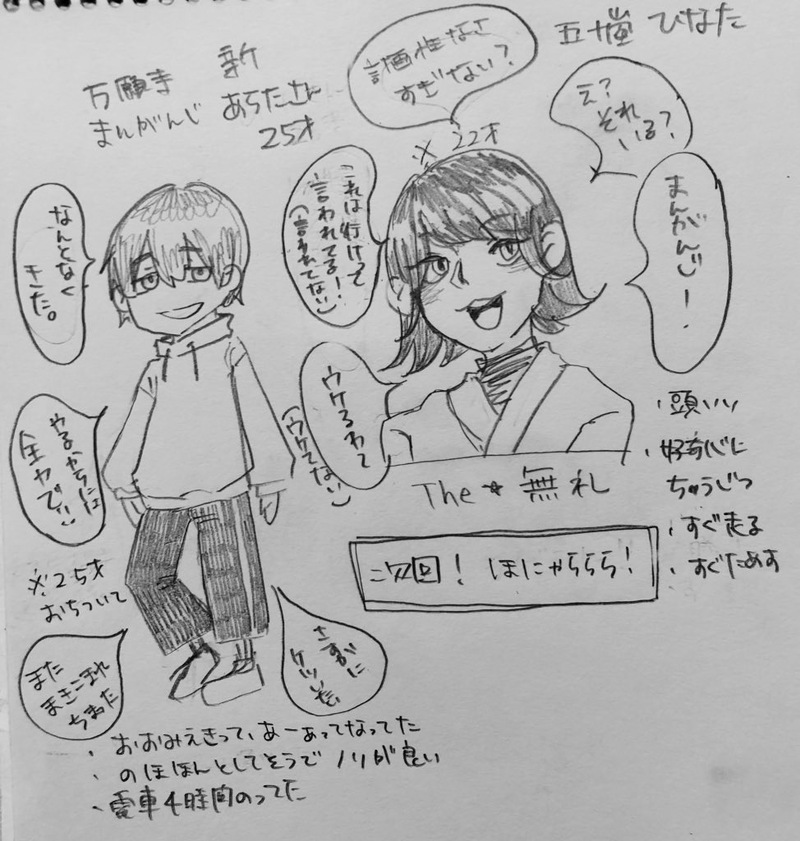 万願寺 新
まんがんじ あらたさん
25才
計画性なさ
すぎない?
五十嵐 ひなた
え?
それ
いる?
※ 22才
まんがんじー!
これは行けって
言われてる!
(言われてない)
なんとなく
きた。
ウケるわて
(ウケてない)
やるからには
全力で!
The★無礼
次回! ほにゃららら!
・頭いい
・好奇心に
ちゅうじつ
・すぐ走る
・すぐためす
※25才
おちついて
また
まきこまれ
ちまた
さすがに
・おおみえきって、あーあってなってた
・のほほんとしてそうでノリが良い
・電車4時間のってた